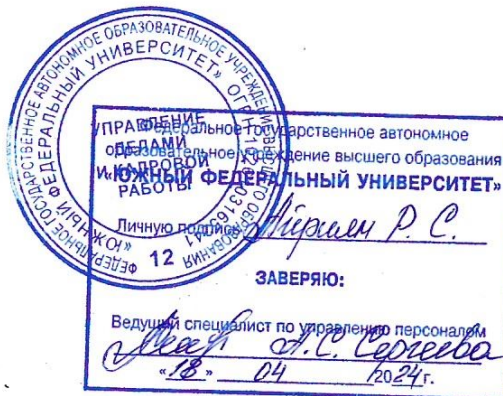 ФЕДЕРАЛЬНОЕ ГОСУДАРСТВЕННОЕ АВТОНОМНОЕ ОБРАЗОВАТЕЛЬНОЕ УЧРЕЖДЕНИЕ ВЫСШЕГО ОБРАЗОВАНИЯ
«ЮЖНЫЙ ФЕДЕРАЛЬНЫЙ УНИВЕРСИТЕТ» ОГРН
УПРАВЛЕНИЕ
ДЕЛАМИ
И КАДРОВОЙ
РАБОТЫ
12
Федеральное государственное автономное
образовательное учреждение высшего образования
«ЮЖНЫЙ ФЕДЕРАЛЬНЫЙ УНИВЕРСИТЕТ»
Личную подпись Р. С.
ЗАВЕРЯЮ:
Ведущий специалист по управлению персоналом
А.С. Сергеева
«18» 04 2024 г.